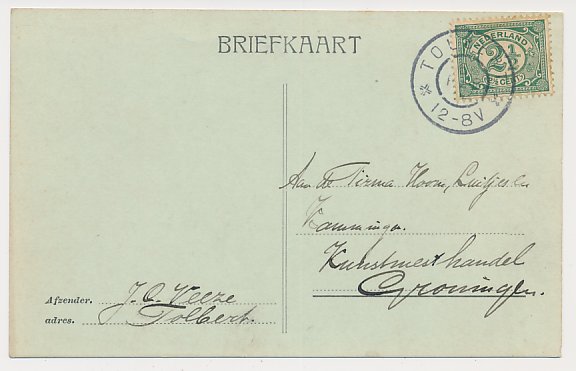 BRIEFKAART
TOL
12-8V
NEDERLAND
2½
CENT
Aan de Firma Hoorn, Luitjes en
Kamminga.
Kunstmest handel
Groningen.
Afzender. J. O. Veeze
adres. Tolbert.